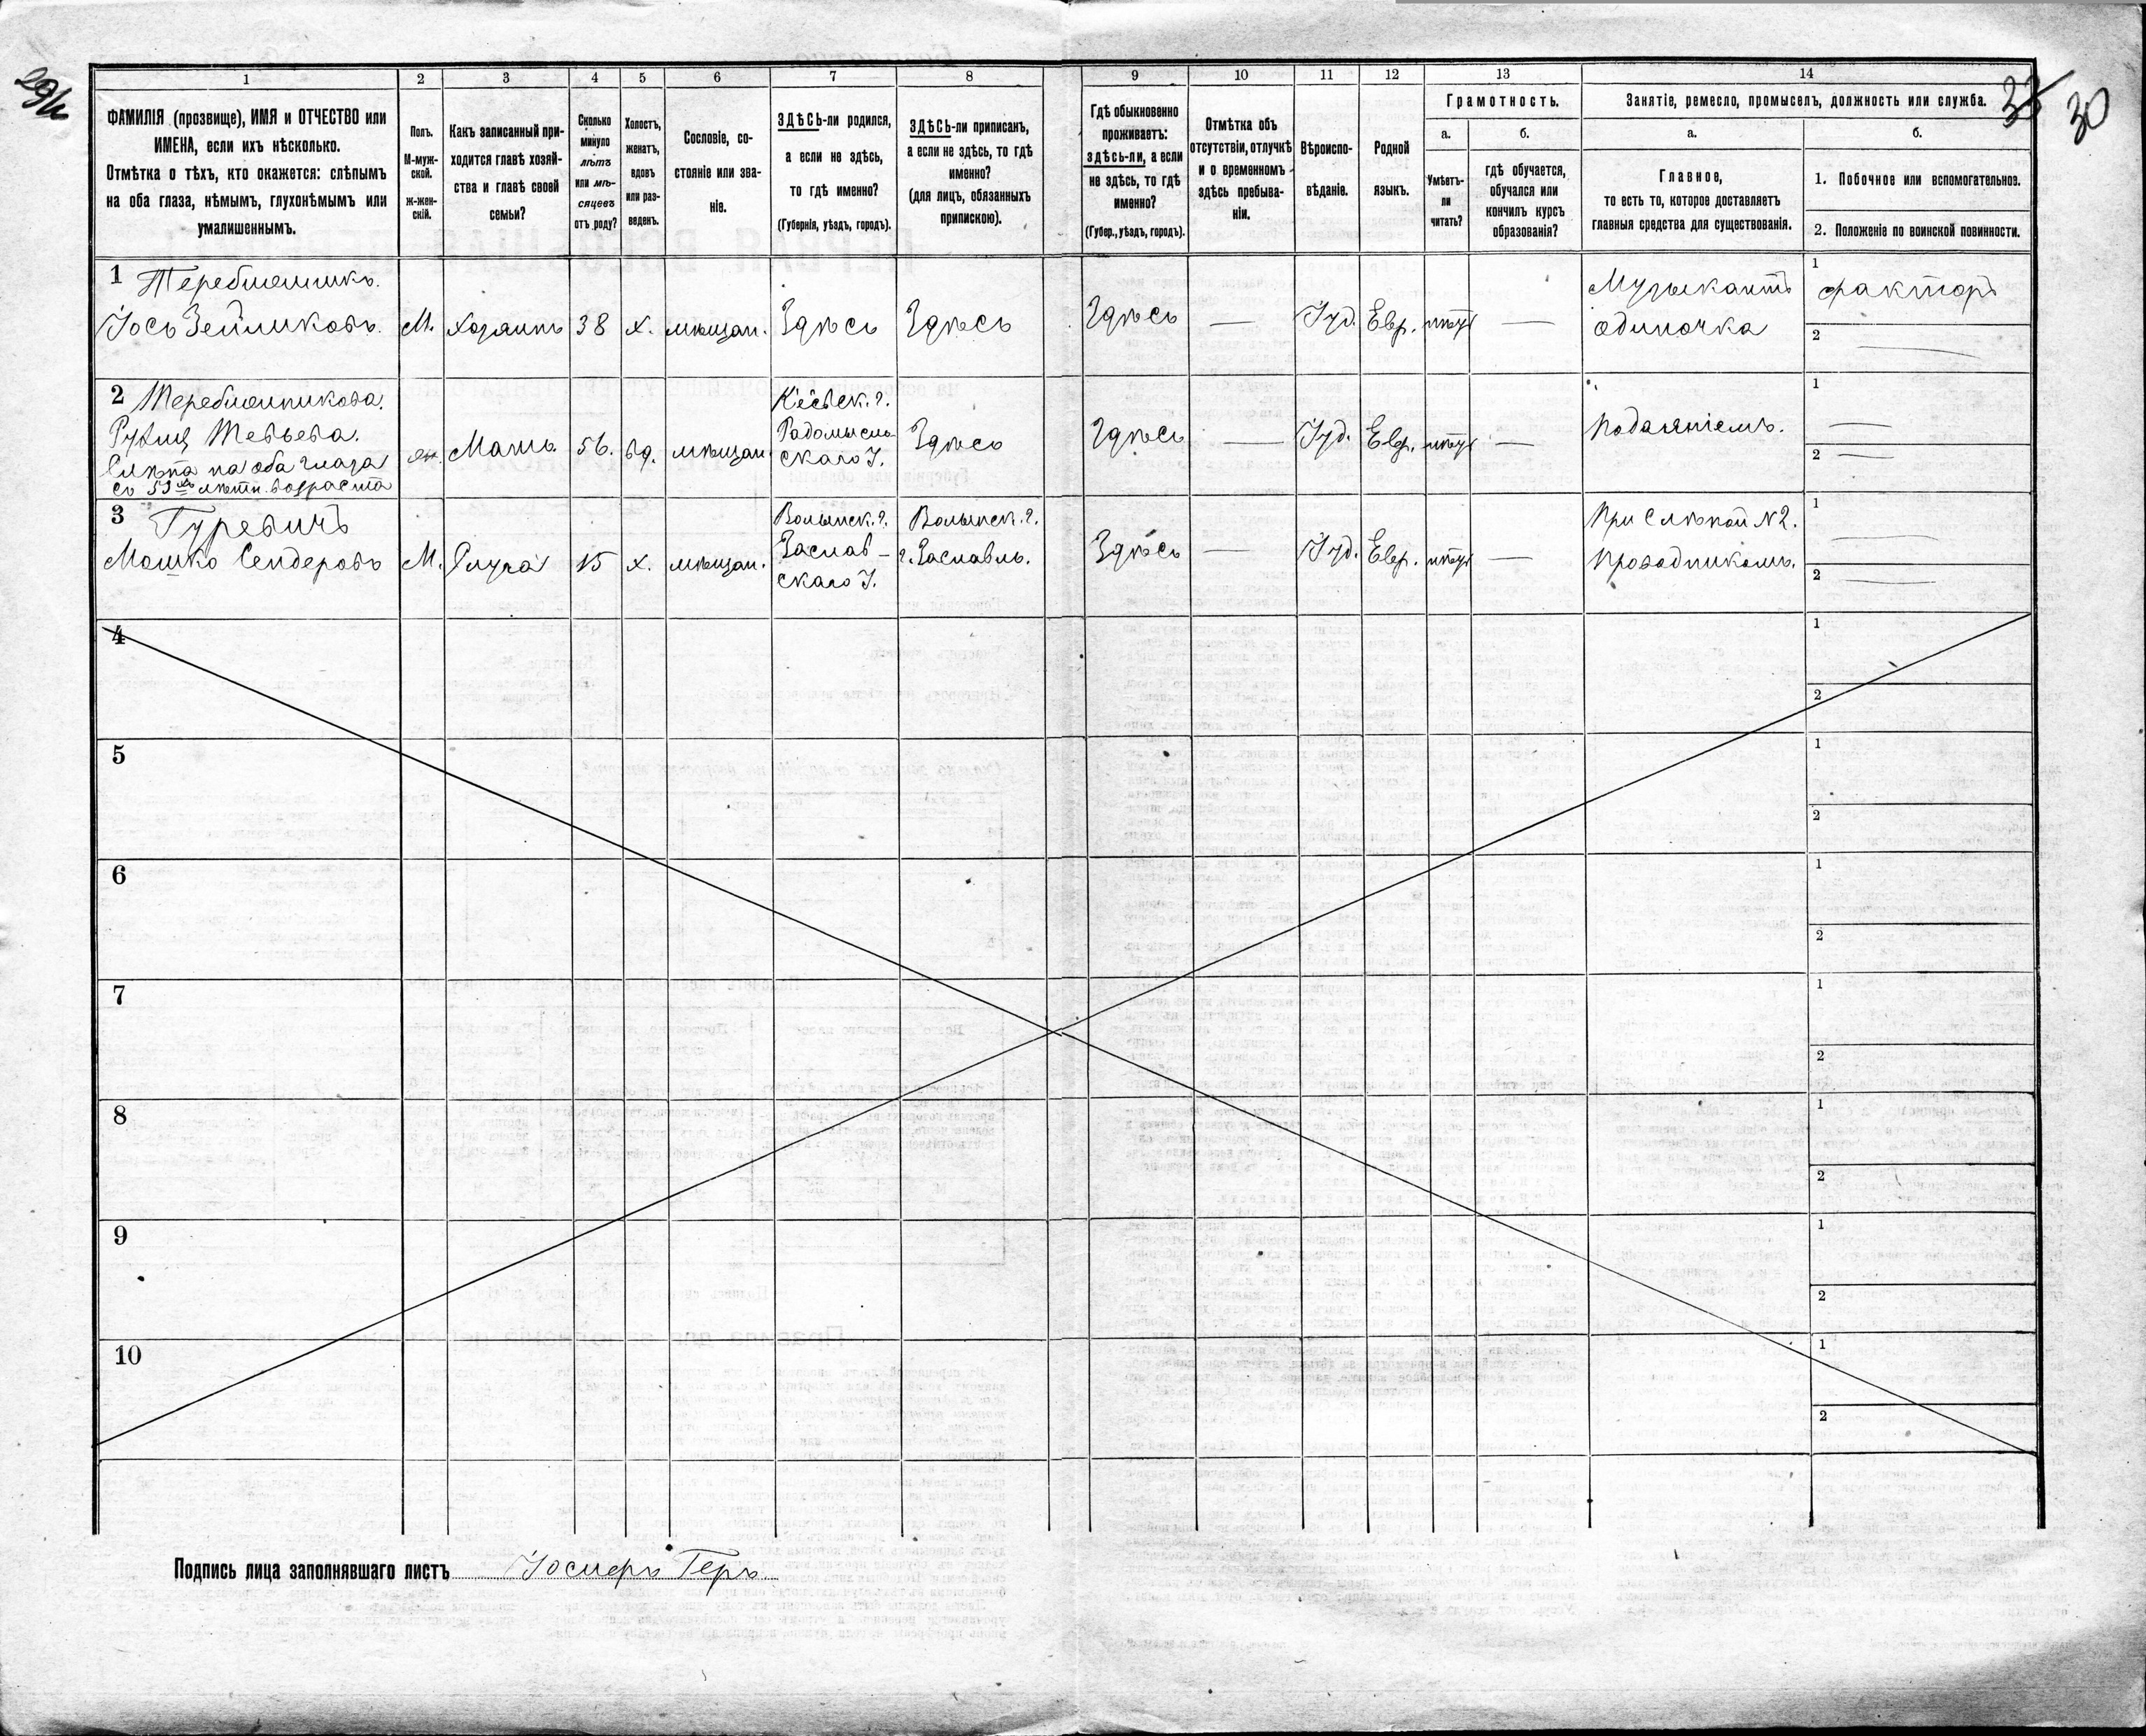 29/2
33
30
1
2
3
4
5
6
7
8
9
10
11
12
13
14
ФАМИЛІЯ (прозвище), ИМЯ и ОТЧЕСТВО или
ИМЕНА, если ихъ нѣсколько.
Отмѣтка о тѣхъ, кто окажется: слѣпымъ
на оба глаза, нѣмымъ, глухонѣмымъ или
умалишеннымъ.
Полъ.
М-муж-
ской.
ж-жен-
скій.
Какъ записанный при-
ходится главѣ хозяй-
ства и главѣ своей
семьи?
Сколько
минуло
лѣтъ
или мѣ-
сяцевъ
отъ роду?
Холостъ,
женатъ,
вдовъ
или раз-
веденъ.
Сословіе, со-
стояніе или зва-
ніе.
ЗДѢСЬ-ли родился,
а если не здѣсь,
то гдѣ именно?
(Губернія, уѣздъ, городъ).
ЗДѢСЬ-ли приписанъ,
а если не здѣсь, то гдѣ
именно?
(для лицъ, обязанныхъ
припискою).
Гдѣ обыкновенно
проживаетъ:
здѣсь-ли, а если
не здѣсь, то гдѣ
именно?
(Губер., уѣздъ, городъ).
Отмѣтка объ
отсутствіи, отлучкѣ
и о временномъ
здѣсь пребыва-
ніи.
Вѣроиспо-
вѣданіе.
Родной
языкъ.
Грамотность.
а.
б.
Умѣетъ-
ли
читать?
гдѣ обучается,
обучался или
кончилъ курсъ
образованія?
Занятіе, ремесло, промыселъ, должность или служба.
а.
б.
Главное,
то есть то, которое доставляетъ
главныя средства для существованія.
1. Побочное или вспомогательное.
2. Положеніе по воинской повинности.
1 Теребилешикъ.
Іось Зейликовъ.
М.
хозяинъ
38
х.
мѣщан.
Здѣсь
Здѣсь
Здѣсь
—
Іуд.
Евр.
нѣтъ
—
Музыкантъ
одиночка
1 факторъ
2 —
2
Тевьева.
Слѣпа на оба глаза
съ 53хъ лѣтн. возраста
жн.
Мать
56.
вд.
мѣщан.
Кіевск. г.
Радомысль-
скаго У.
Здѣсь
Здѣсь
—
Іуд.
Евр.
нѣтъ
—
Подаяніемъ.
1 —
2 —
3 Гуревичъ
Мошко Сендеровъ
М.
Слуга
15
х.
мѣщан.
Волынск. г.
Заслав-
скаго У.
Волынск. г.
г. Заславль.
Здѣсь
—
Іуд.
Евр.
нѣтъ
—
При Слѣпой №2.
Проводникомъ.
1 —
2 —
4
1
2
5
1
2
6
1
2
7
1
2
8
1
2
9
1
2
10
1
2
Подпись лица заполнявшаго листъ Іосифъ Геръ.